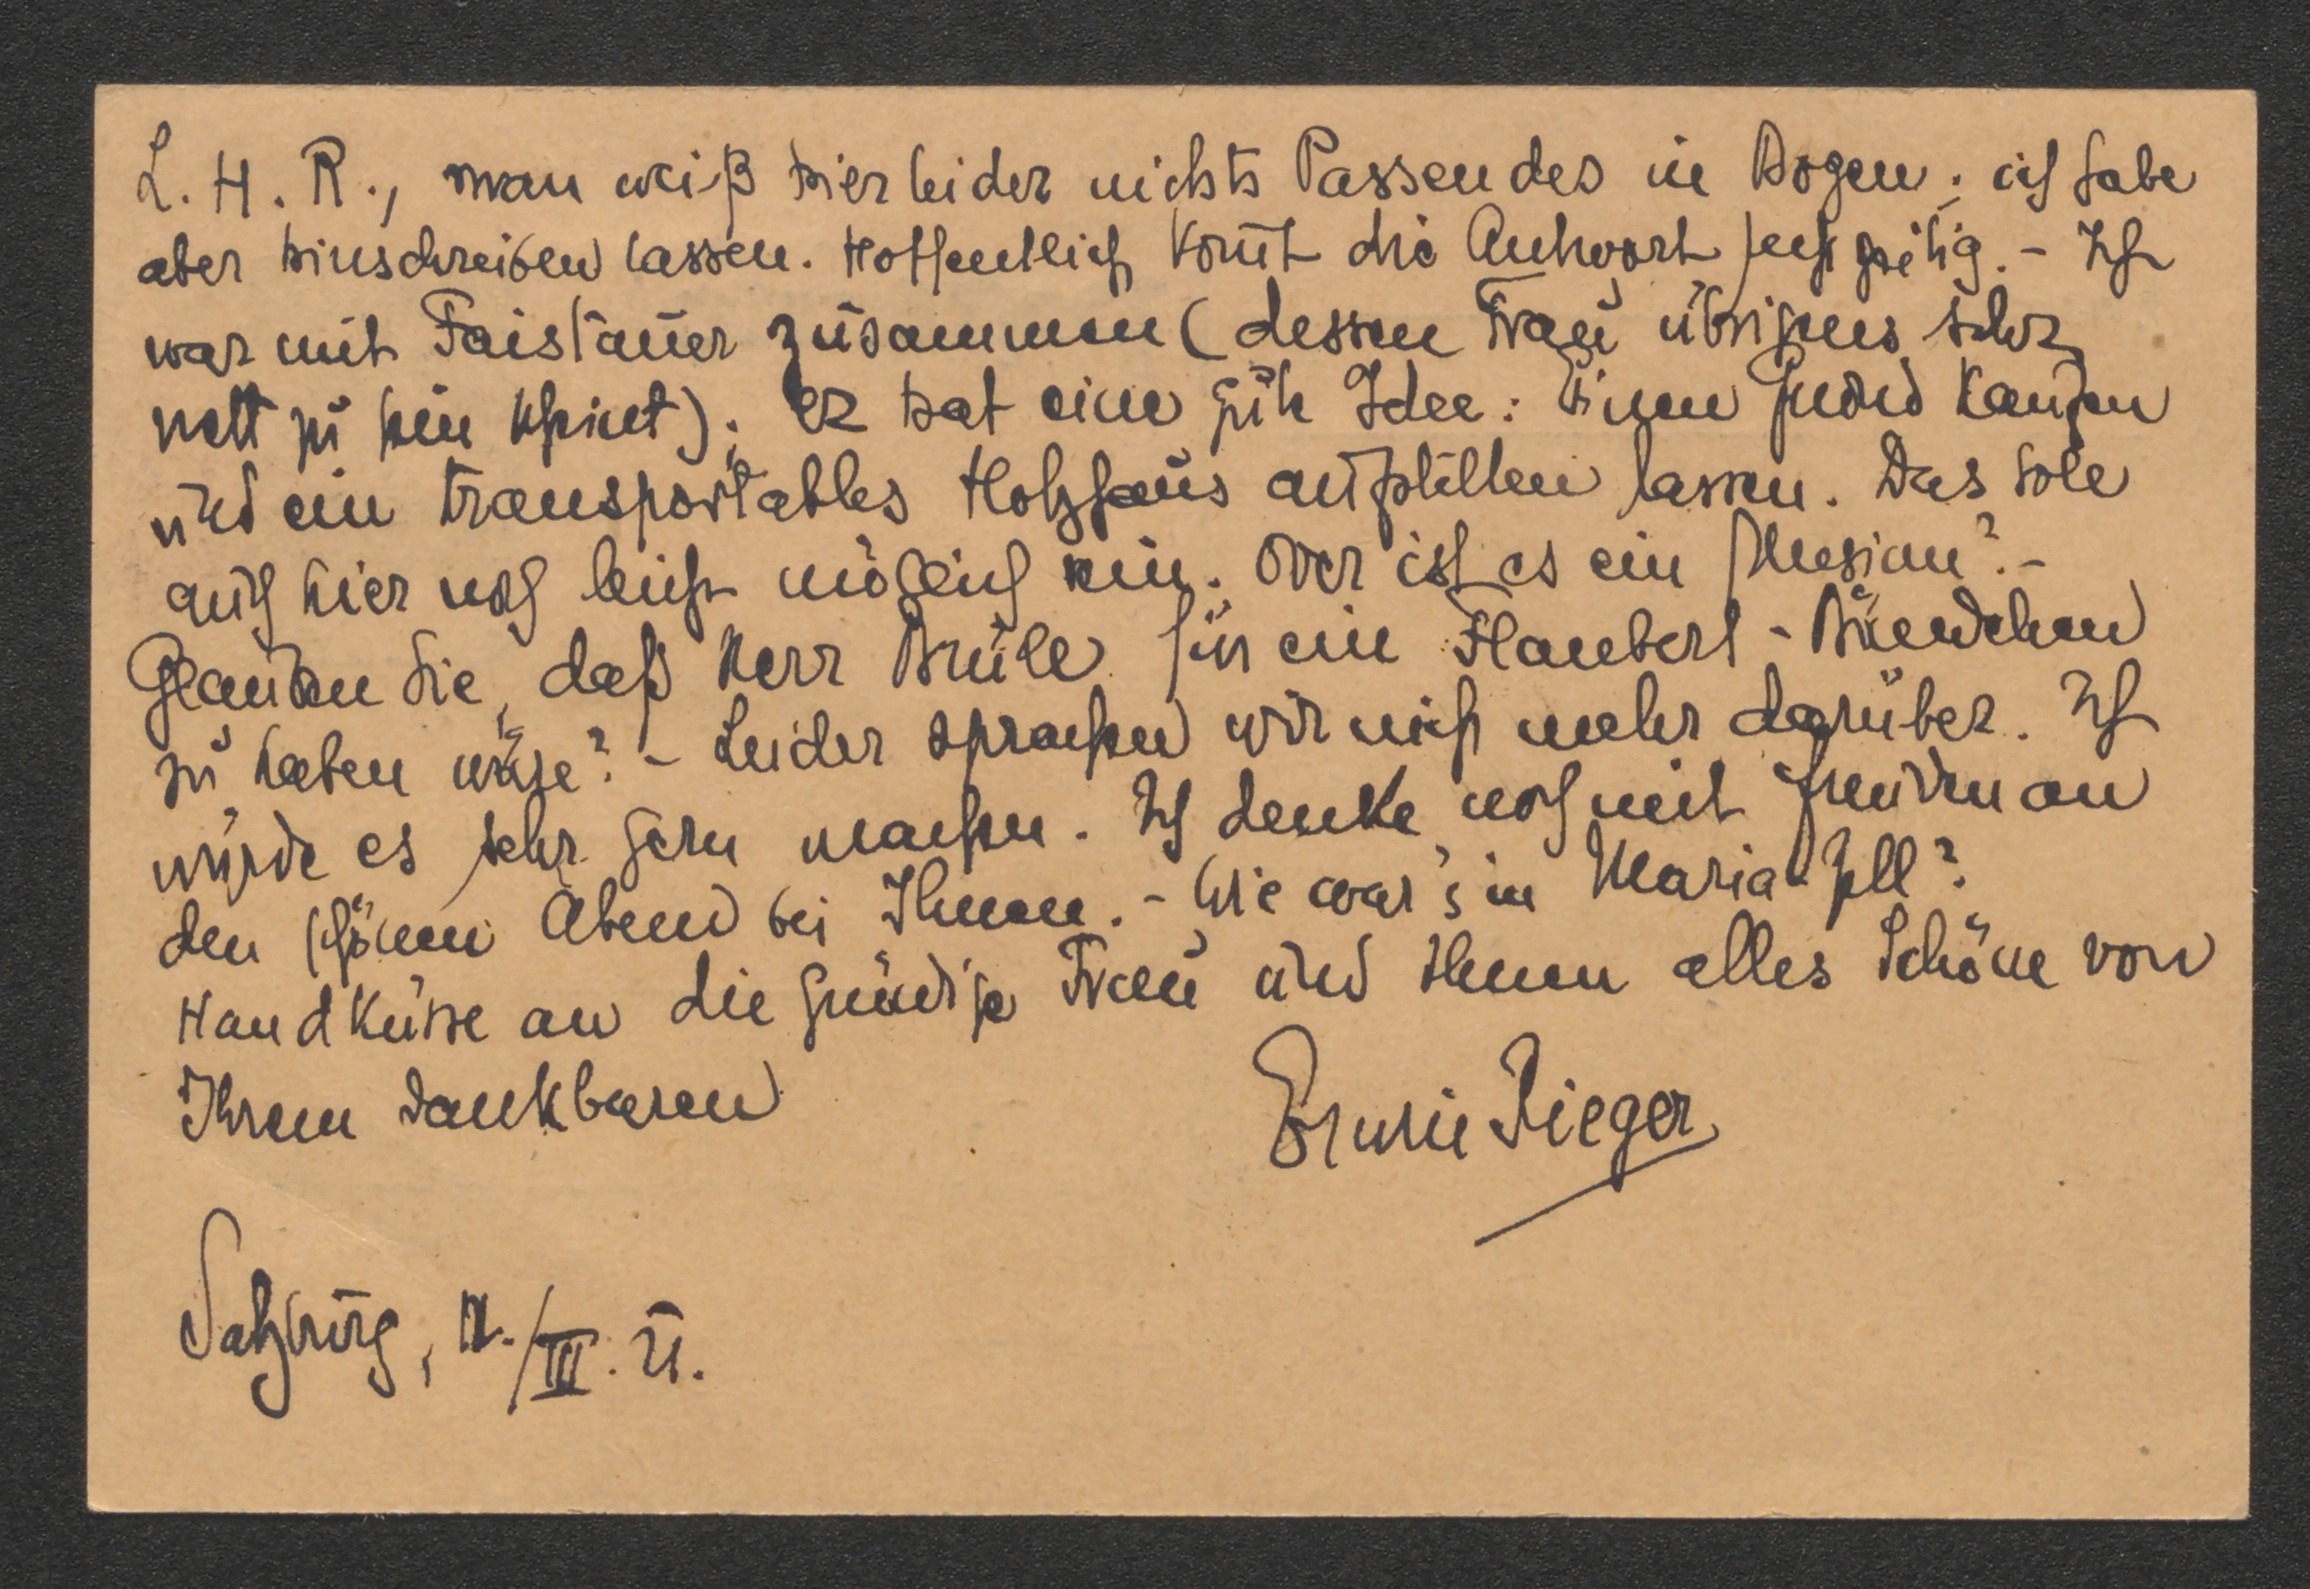 L. H. R., man weiß hier leider nichts Passendes in Bozen; ich habe
aber hinschreiben lassen. Hoffentlich kom̄t die Antwort rechtzeitig. – Ich
war mit Faistauer zusammen (dessen Frau übrigens sehr
nett zu sein scheint); er hat eine gute Idee: Einen Grund kaufen
und ein transportables Holzhaus aufstellen lassen. Das solle
auch hier noch leicht möglich sein. Oder ist es ein Illusion? –
Glauben Sie, daß Herr Brüll für ein Flaubert-Bändchen
zu haben wäre? – Leider sprachen wir nicht mehr darüber. Ich
würde es sehr gern machen. Ich denke noch mit Freuden an
den schönen Abend bei Ihnen. – Wie war's in Maria-Zell?
Handküsse an die gnädige Frau und Ihnen alles Schöne von
Ihrem dankbaren
Erwin Rieger
Salzburg, /III. 21.